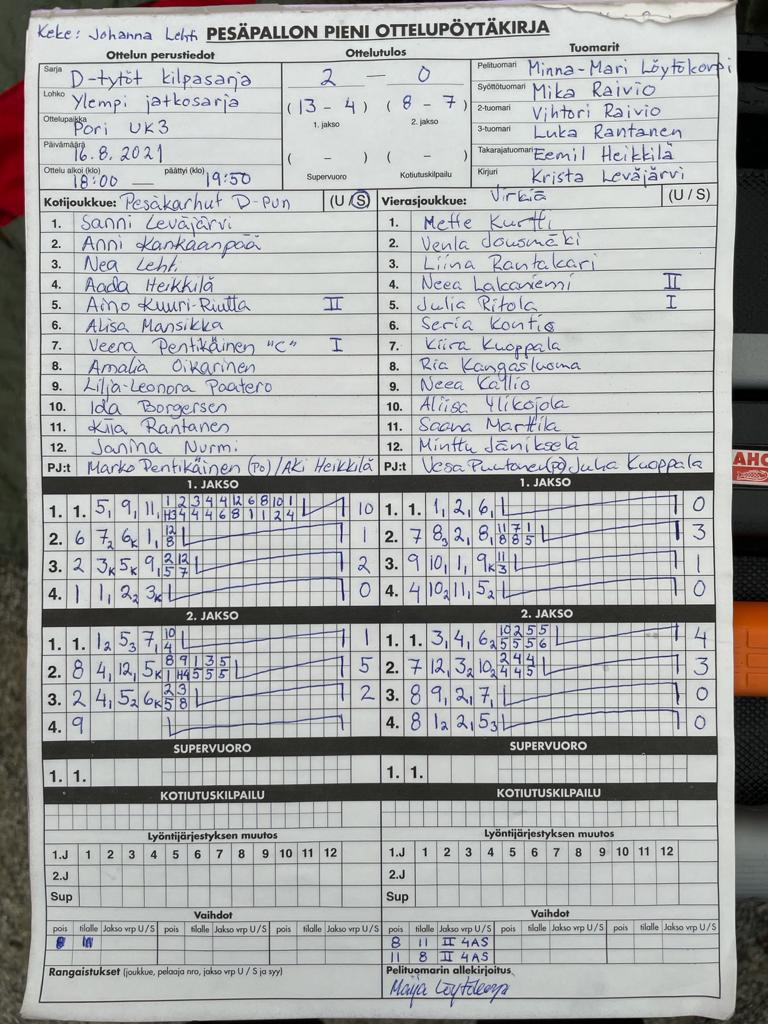 Keke: Johanna Lehti PESÄPALLON PIENI OTTELUPÖYTÄKIRJA
Ottelun perustiedot Ottelutulos Tuomarit
Sarja D-tytöt kilpasarja
Lohko Ylempi jatkosarja
Ottelupaikka Pori UK3
Päivämäärä 16.8.2021
Ottelu alkoi (klo) päättyi (klo)
18:00 — 19:50
2 — 0
(13 - 4) (8 - 7)
1. jakso 2. jakso
( - ) ( - )
Supervuoro Kotiutuskilpailu
Pelituomari Minna-Mari Löytökorpi
Syöttötuomari Mika Raivio
2-tuomari Vihtori Raivio
3-tuomari Luka Rantanen
Takarajatuomari Eemil Heikkilä
Kirjuri Krista Leväjärvi
Kotijoukkue: Pesäkarhut D-pun (U / S)
1. Sanni Leväjärvi
2. Anni Kankaanpää
3. Nea Lehti
4. Aada Heikkilä
5. Aino Kuuri-Riutta II
6. Alisa Mansikka
7. Veera Pentikäinen "C" I
8. Amalia Oikarinen
9. Lilja-Leonora Paatero
10. Ida Borgersen
11. Kiia Rantanen
12. Janina Nurmi
PJ:t Marko Pentikäinen (Po) / Aki Heikkilä
Vierasjoukkue: Virkiä (U / S)
1. Mette Kurtti
2. Venla Jousmäki
3. Liina Rantakari
4. Neea Lakaniemi II
5. Julia Ritola I
6. Seria Kontio
7. Kiira Kuoppala
8. Ria Kangasluoma
9. Neea Kallio
10. Aliisa Ylikojola
11. Saana Marttila
12. Minttu Jänikselä
PJ:t Vesa Juha Kuoppala
1. JAKSO
1. 1. 5, 9, 11, 10
2. 6 7₂ 6ₖ 1, 12 8 1
3. 2 3ₖ 5ₖ 9, 2 12 5 7 2
4. 1 1, 2₂ 3ₖ 0
1. JAKSO
1. 1. 1, 2, 6, 0
2. 7 8₃ 2, 8, 11 7 1 8 8 5 3
3. 9 10, 1, 9ₖ 11 3 1
4. 4 10₂ 11, 5₂ 0
2. JAKSO
1. 1. 1₂ 5₃ 7, 10 4 1
2. 8 4, 12, 5ₖ 8 9 1 3 5 5
3. 2 4, 5₂ 6ₖ 2 3 5 8 2
4. 9
2. JAKSO
1. 1. 3, 4, 6₂ 10 2 5 5 5 5 5 6 4
2. 7 12, 3₂ 10₂ 2 4 4 4 4 5 3
3. 8 9, 2, 7, 0
4. 8 1₂ 2, 5₃ 0
SUPERVUORO SUPERVUORO
1. 1. 1. 1.
KOTIUTUSKILPAILU KOTIUTUSKILPAILU
Lyöntijärjestyksen muutos Lyöntijärjestyksen muutos
1.J 1 2 3 4 5 6 7 8 9 10 11 12 1.J 1 2 3 4 5 6 7 8 9 10 11 12
2.J 2.J
Sup Sup
Vaihdot Vaihdot
pois tilalle Jakso vrp U / S pois tilalle Jakso vrp U / S pois tilalle pois tilalle Jakso vrp U / S pois tilalle Jakso vrp U / S pois tilalle
8 11 II 4AS
11 8 II 4AS
Rangaistukset (joukkue, pelaaja nro, jakso vrp U / S ja syy) Pelituomarin allekirjoitus